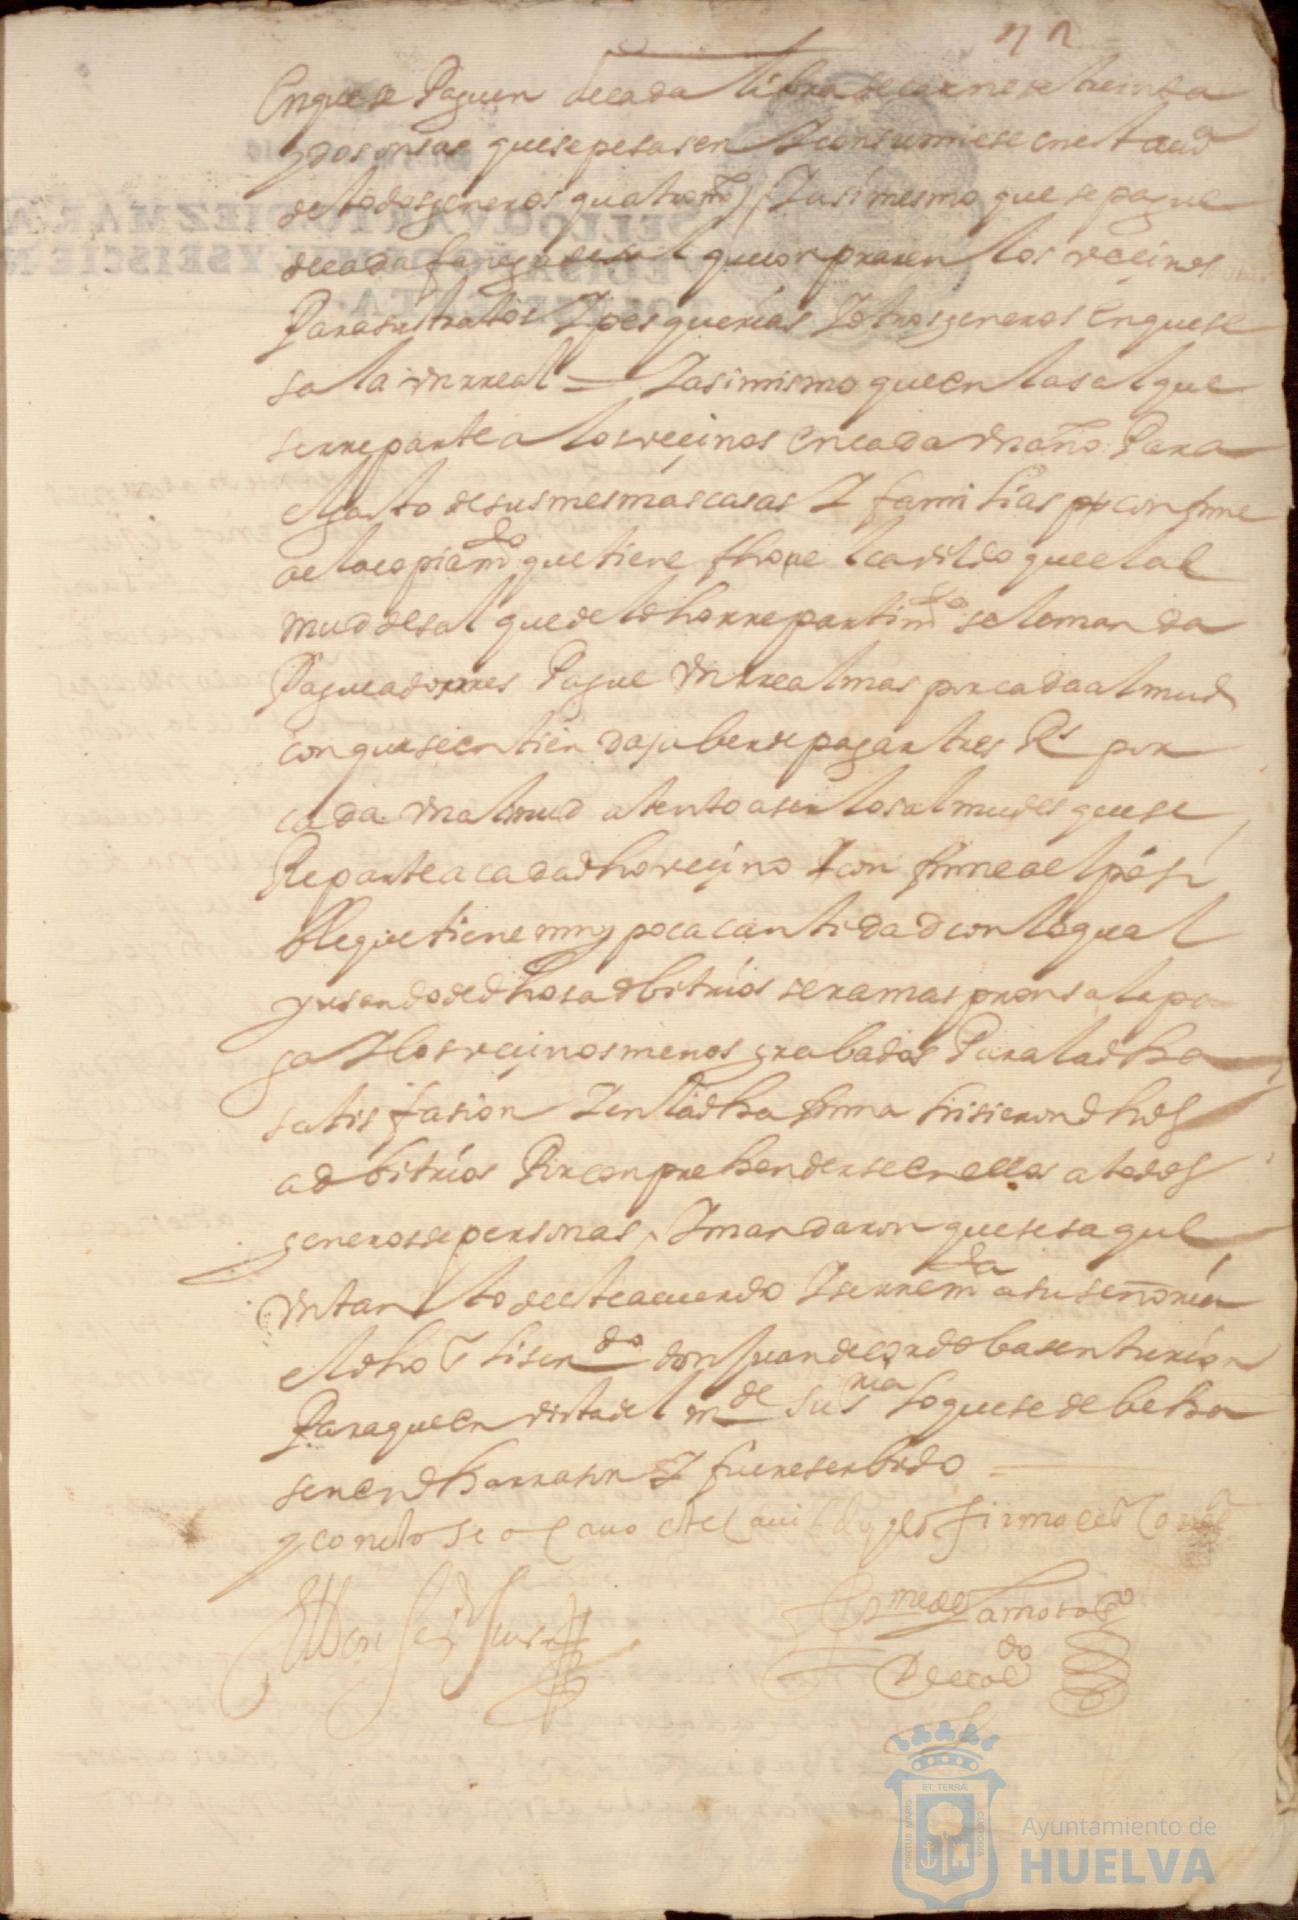 en que se Paguen de cada libra de carne de treinta
y dos onsas que se pesasen Y consumiese en esta
de todos generos quatro Y asi mesmo que se pague
de cada fanega de sal que conpraren los vecinos
Para sus tratos Y pesquerias Y otros generos en que se
sala un rreal = Y asi mismo que en la sal que
se rreparte a los vecinos en cada un año Para
el gasto de sus mesmas casas Y familias conforme
a el acopiamdo que tiene fho el cavildo que el al
mud de sal que de el dho rrepartimdo se le manda
Pague a dos rres Pague un rreal mas por cada almud
con que se entienda aber de pagar tres Rs por
cada un almud atento a ser los almudes que se
Reparte a cada dho vecino Y conforme a el posi
ble que tiene muy poca cantidad con lo qual
y usando de dhos adbitrios sera mas pronta la pa
ga Y los vecinos menos grabados Para la dha
satisfasion Y en la dha forma hisieron dhos
adbitrios Por conprehenderse en ellos a todos
generos de personas, Y mandaron que se saque
un tanto de este acuerdo Y se rremda a su señoria
el dho Sr lisendo don Juan de Cordoba senturion
Para que en vista del mde su sria lo que se deba ha
ser en dha rrason Y fuere serbido
y con esto se acavo este cavildo y lo firmo
Bme de Zamora